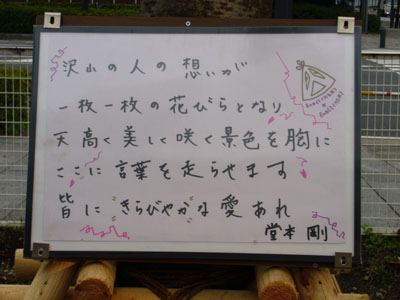 沢山の人の想いが
一枚一枚の花びらとなり
天高く美しく咲く景色を胸に
ここに言葉を走らせます
皆に"きらびやかな愛あれ
堂本 剛